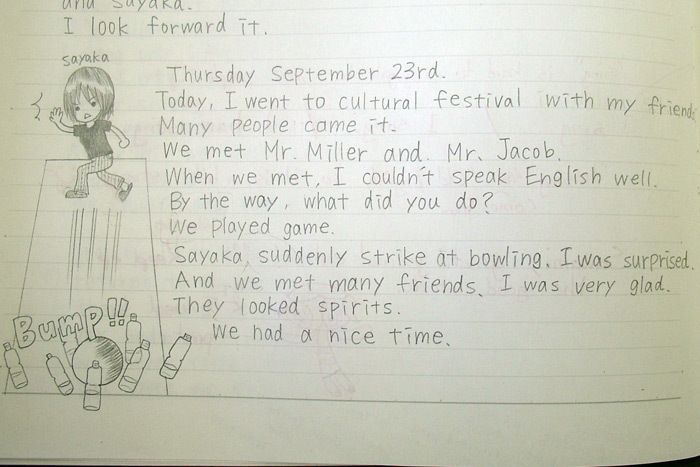 and Sayaka.
I look forward it.
sayaka
Thursday September 23rd.
Today, I went to cultural festival with my friends
Many people came it.
We met Mr. Miller and. Mr. Jacob.
When we met, I couldn't speak English well.
By the way, what did you do?
We played game.
Sayaka, suddenly strike at bowling. I was surprised.
And we met many friends. I was very glad.
They looked spirits.
We had a nice time.
Bump!!